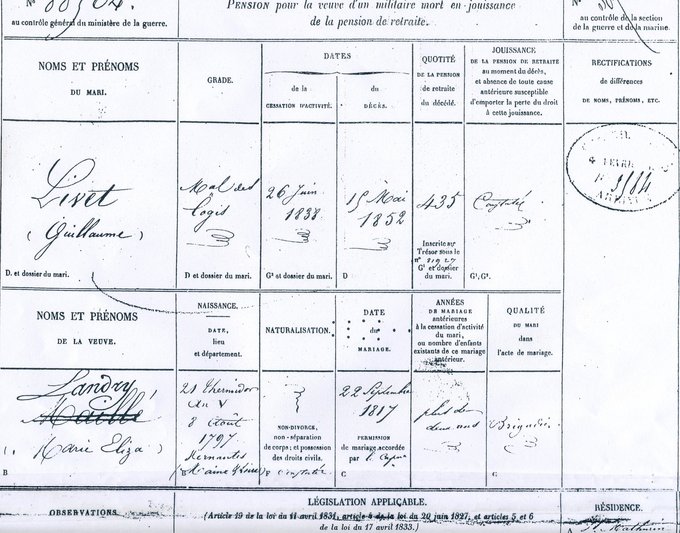 PENSION pour la veuve d'un militaire mort en jouissance
de la pension de retraite.
au contrôle général du ministère de la guerre.
au contrôle de la section
de la guerre et de la marine.
NOMS ET PRÉNOMS
DU MARI.
GRADE.
DATES
de la
CESSATION D'ACTIVITÉ.
du
DÉCÈS.
QUOTITÉ
DE LA PENSION
de retraite
du décédé.
JOUISSANCE
DE LA PENSION DE RETRAITE
au moment du décès,
et absence de toute cause
antérieure susceptible
d'emporter la perte du droit
à cette jouissance.
RECTIFICATIONS
de différences
DE NOMS, PRÉNOMS, ETC.
Livet
(Guillaume)
Mal des
logis
26 Juin
1838
15 Mai
1852
435
Constaté
Inscrite au
Trésor sous le
n°
G¹ et dossier
du mari.
D. et dossier du mari.
D et dossier du mari.
G² et dossier du mari.
D
G¹, G².
NOMS ET PRÉNOMS
DE LA VEUVE.
NAISSANCE.
DATE,
lieu
et département.
NATURALISATION.
DATE
du
MARIAGE.
ANNÉES
DE MARIAGE
antérieures
à la cessation d'activité
du mari,
ou nombre d'enfants
existants de ce mariage
antérieur.
QUALITÉ
DU MARI
dans
l'acte de mariage.
Landry
Maillé
(Marie Eliza)
B
21 Thermidor
An V
8 Août
1797
NON-DIVORCE,
non-séparation
de corps; et possession
des droits civils.
Constatée
22 Septembre
1817
PERMISSION
de mariage accordée
par
C
plus de
deux ans
Brigadier
OBSERVATIONS.
LÉGISLATION APPLICABLE.
(Article 19 de la loi du 11 avril 1831, article 4 de la loi du 20 juin 1827, et articles 5 et 6
de la loi du 17 avril 1833.)
RÉSIDENCE.